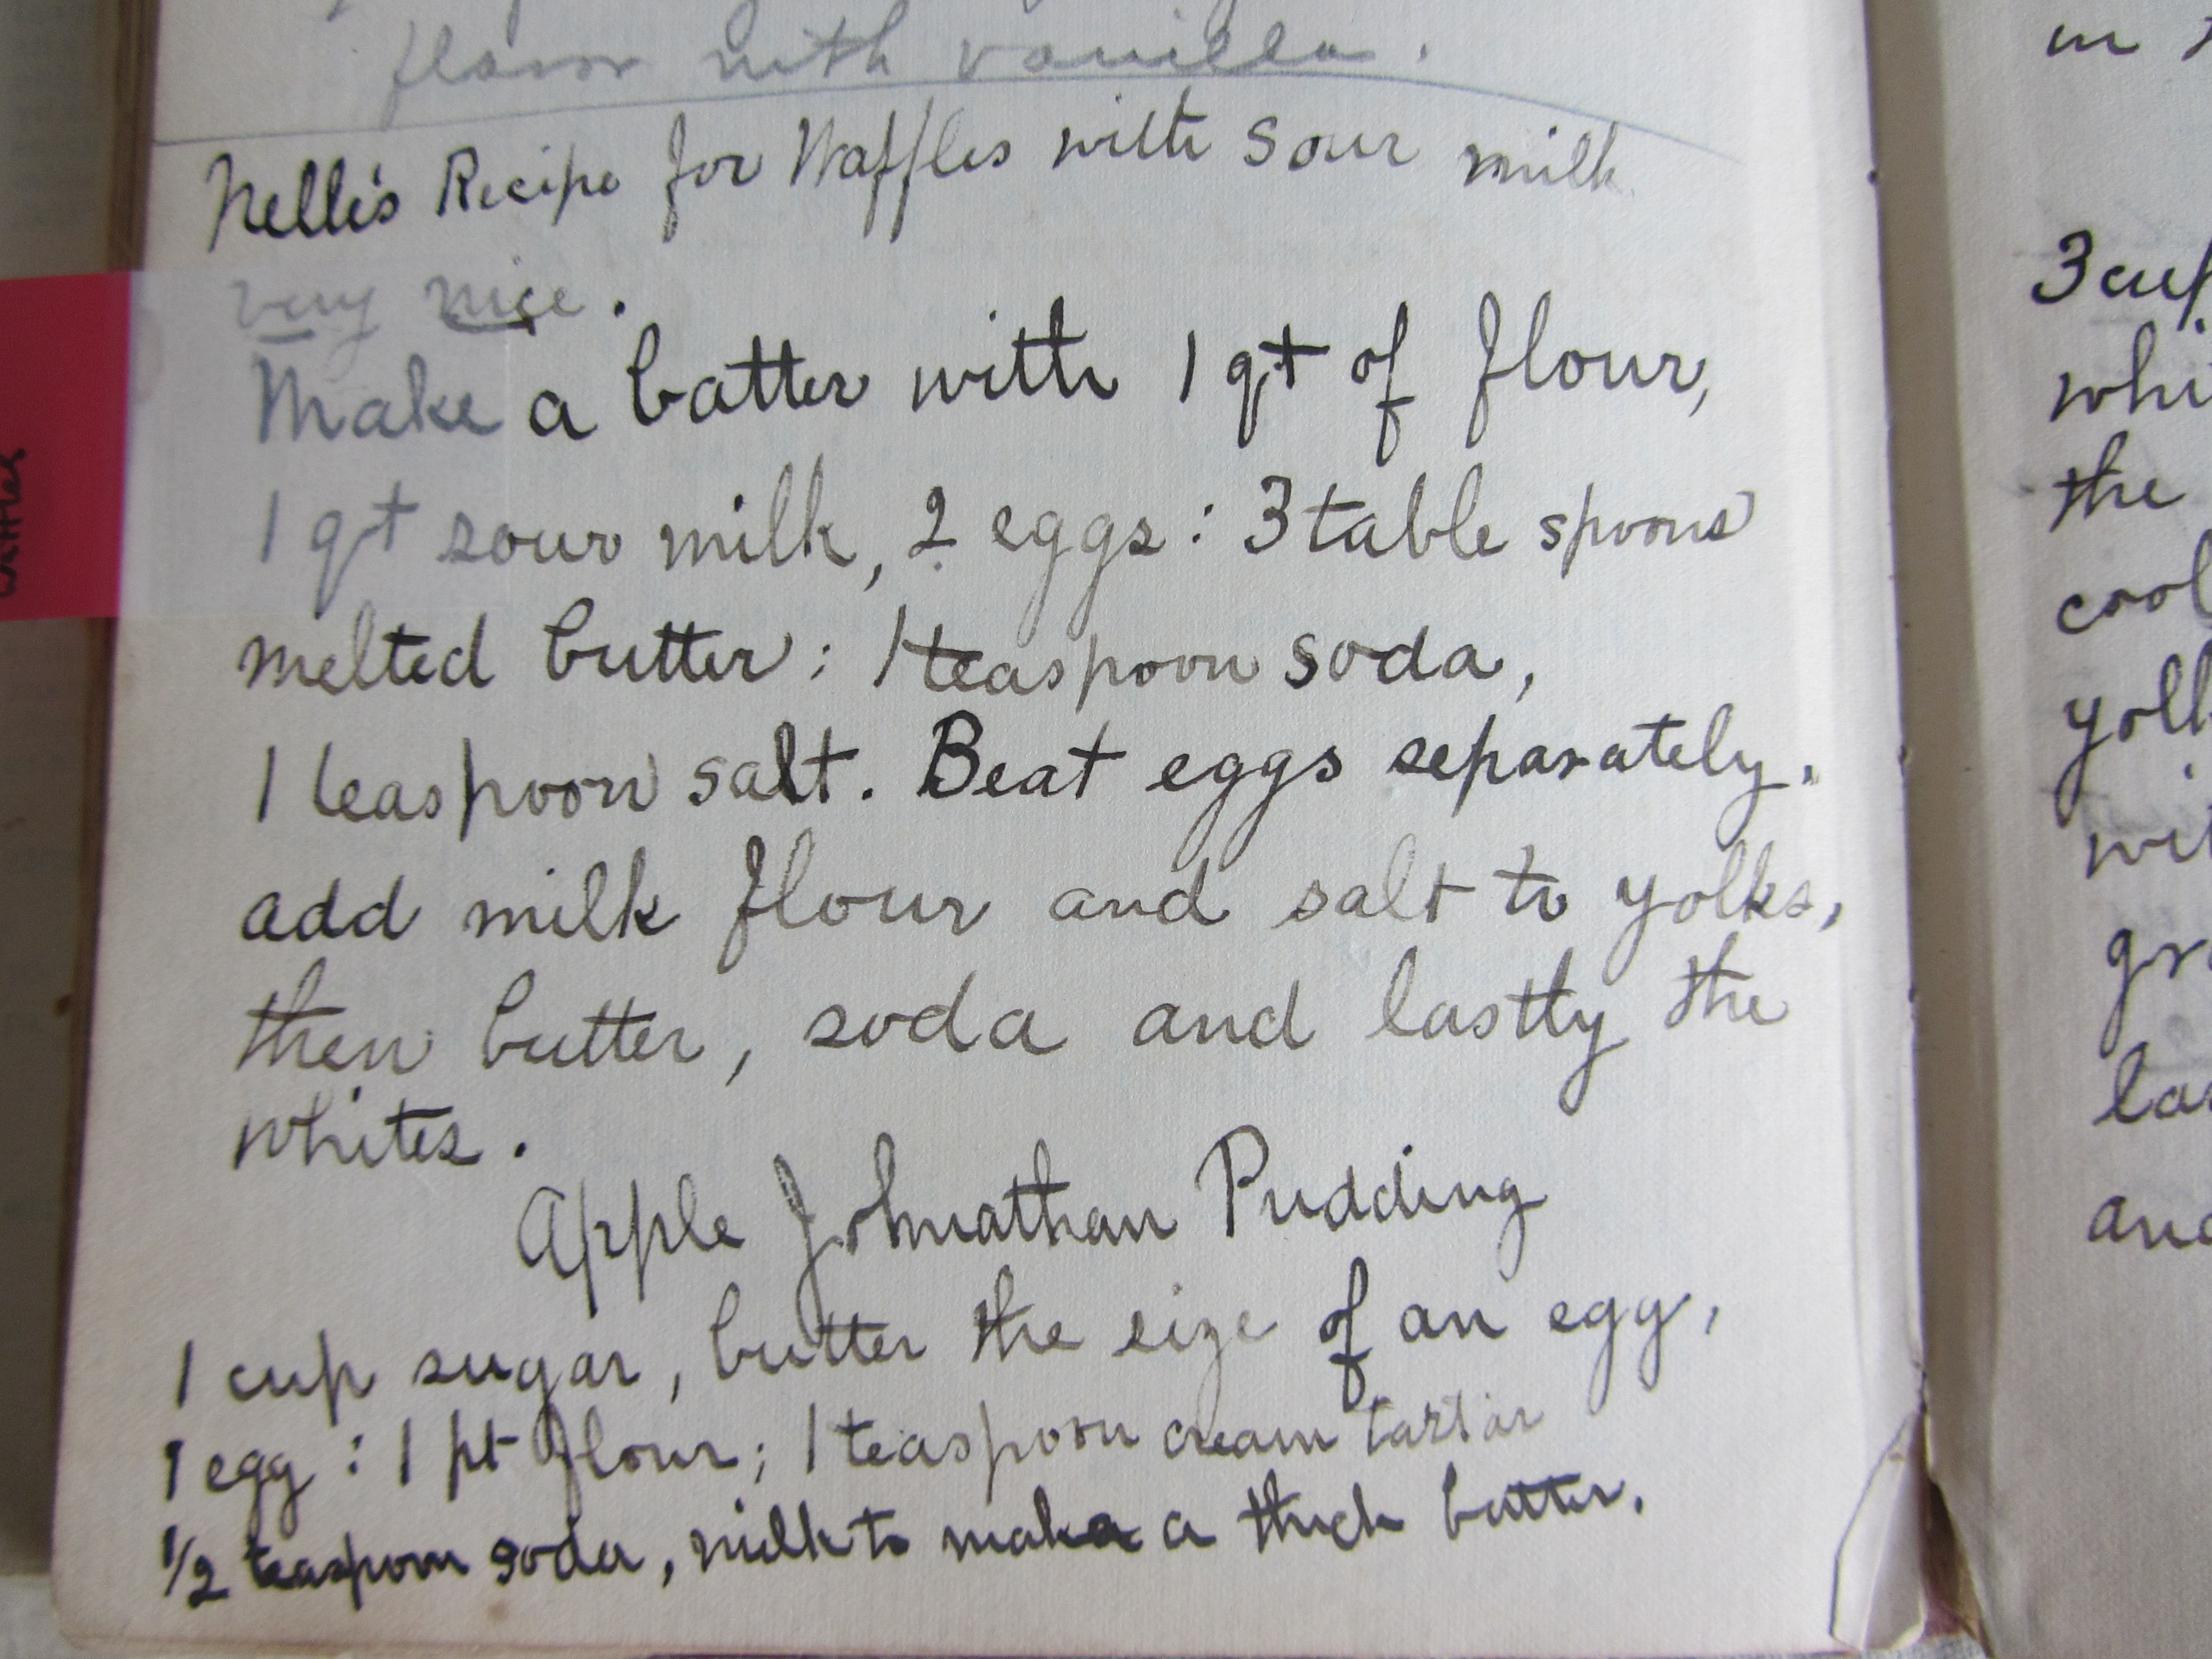 flavor with vanilla.
Nellie's Recipe for Waffles with Sour milk
very nice.
Make a batter with 1 qt of flour,
1 qt sour milk, 2 eggs: 3 table spoons
melted butter: 1 teaspoon soda,
1 teaspoon salt. Beat eggs separately,
add milk flour and salt to yolks,
then butter, soda and lastly the
whites.
Apple Johnathan Pudding
1 cup sugar, butter the size of an egg,
1 egg: 1 pt flour; 1 teaspoon cream tartar
1/2 teaspoon soda, milk to make a thick batter.
waffles
in
3 cup
whi
the
cool
yolk
wit
gra
las
and